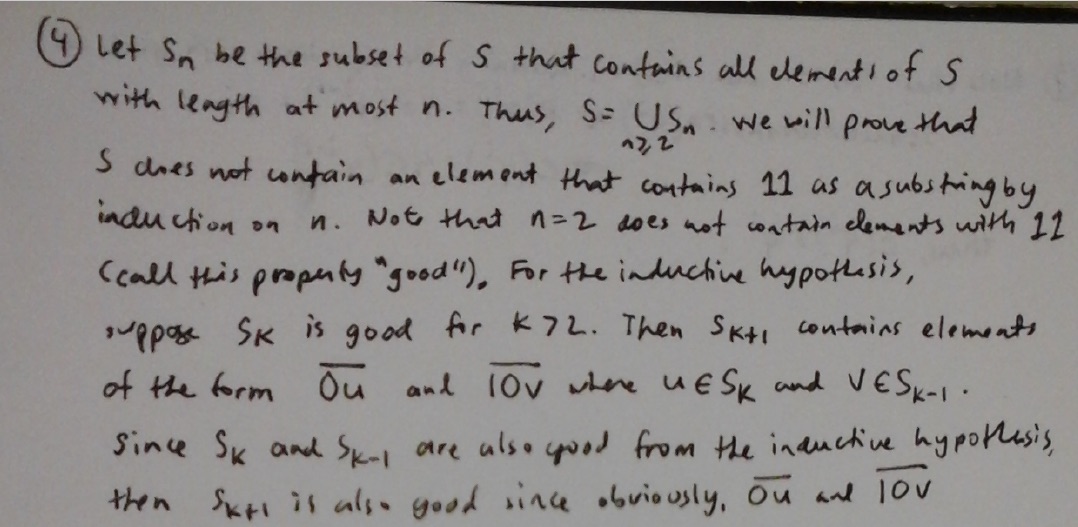 ④ Let Sₙ be the subset of S that contains all elements of S
with length at most n. Thus, S = ∪ Sₙ. We will prove that
n≥2
S does not contain an element that contains 11 as a substring by
induction on n. Note that n=2 does not contain elements with 11
(call this property "good"). For the inductive hypothesis,
suppose Sₖ is good for k>2. Then Sₖ₊₁ contains elements
of the form 0̅u̅ and 1̅0̅v̅ where u∈Sₖ and v∈Sₖ₋₁.
Since Sₖ and Sₖ₋₁ are also good from the inductive hypothesis,
then Sₖ₊₁ is also good since obviously, 0̅u̅ and 1̅0̅v̅